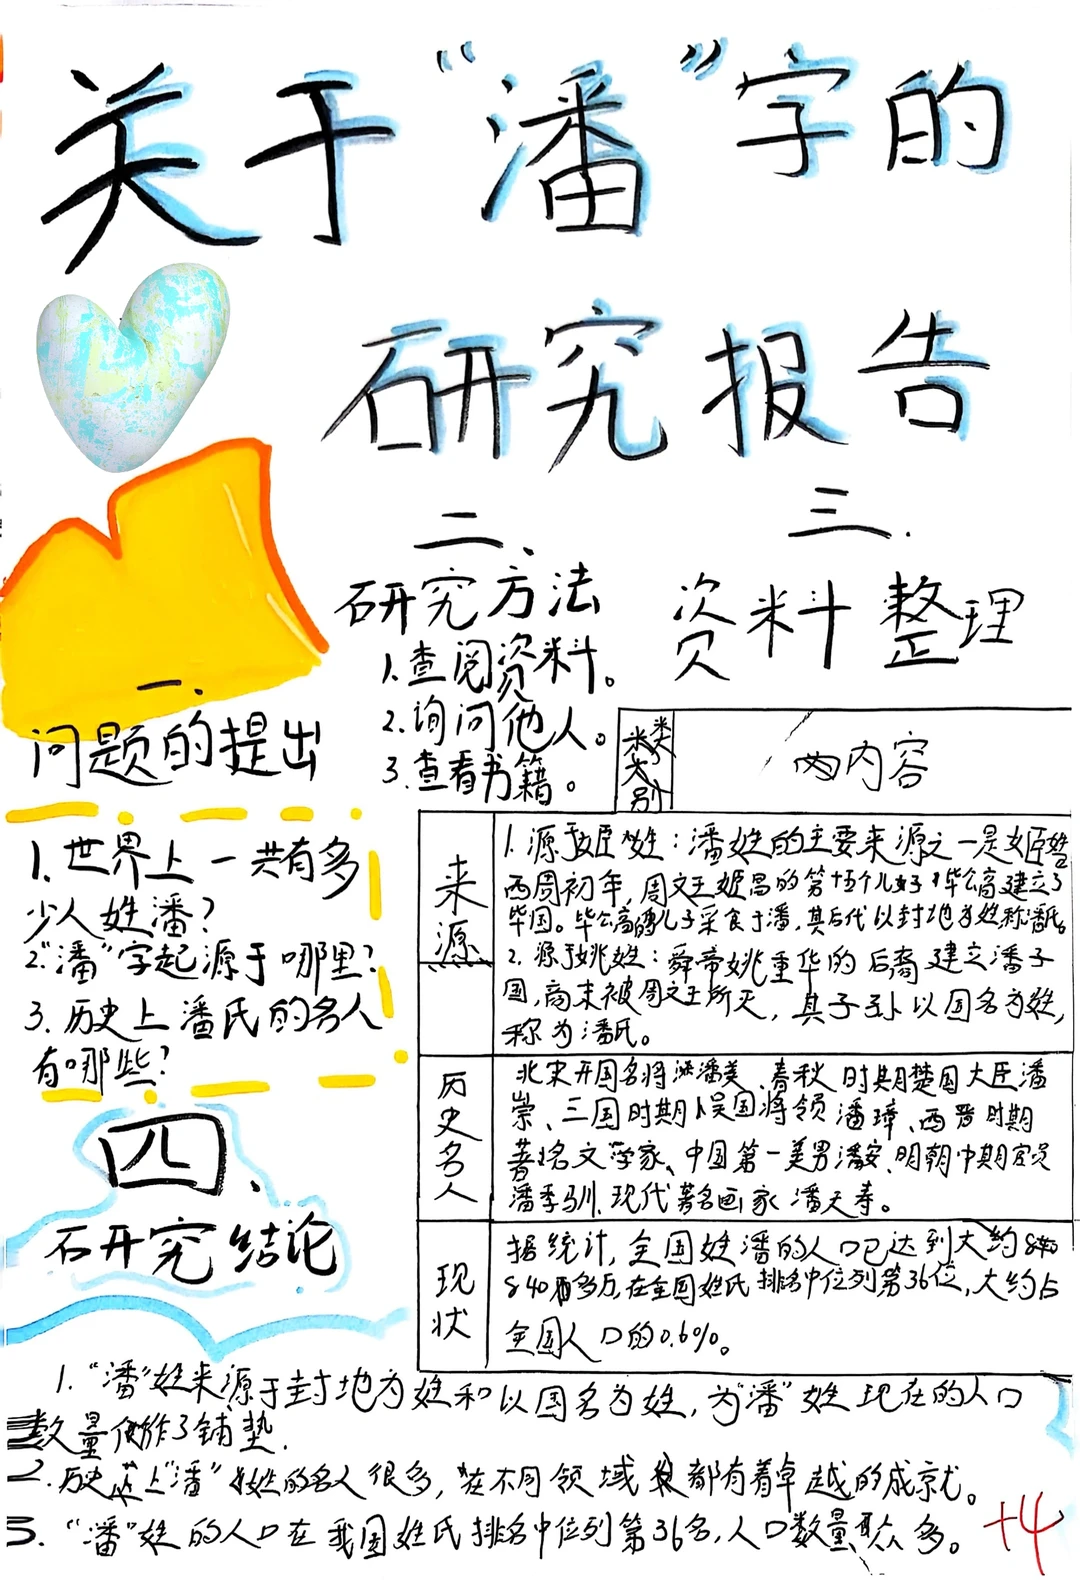 关于“潘”字的
研究报告
一.
问题的提出
1.世界上一共有多
少人姓潘?
2.“潘”字起源于哪里?
3.历史上潘氏的名人
有哪些?
二、
研究方法
1.查阅资料。
2.询问他人。
3.查看书籍。
三.
资料整理
类别
内容
来源
1.源于姬姓:潘姓的主要来源之一是姬姓
西周初年,周文王姬昌的第十五个儿子毕公高建立了
毕国。毕公高儿子采食于潘,其后代以封地为姓称潘氏。
2.源于姚姓:舜帝姚重华的后裔建立潘子
国,商末被周文王所灭,其子孙以国名为姓,
称为潘氏。
历史名人
北宋开国名将潘美、春秋时期楚国大臣潘
崇、三国时期吴国将领潘璋、西晋时期
著名文学家、中国第一美男潘安、明朝中期官员
潘季驯、现代著名画家潘天寿。
现状
据统计,全国姓潘的人口已达到大约
840多万,在全国姓氏排名中位列第36位,大约占
全国人口的0.6%。
四、
研究结论
1.“潘”姓来源于封地为姓和以国名为姓,为“潘”姓现在的人口
数量做了铺垫.
2.历史上“潘”姓的名人很多,在不同领域都有着卓越的成就。
3.“潘”姓的人口在我国姓氏排名中位列第36名,人口数量众多。
+4